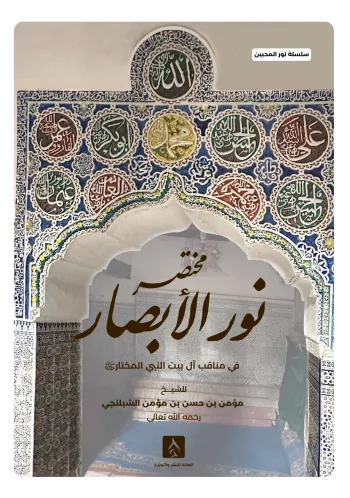 سلسلة نور المحبين
الله
عمر
أبوبكر
محمد
الحسن
علي
عثمان
الحسين
مختصر
نور الأبصار
في مناقب آل بيت النبي المختار ﷺ
للشيخ
مؤمن بن حسن بن مؤمن الشبلنجي
رحمه الله تعالى